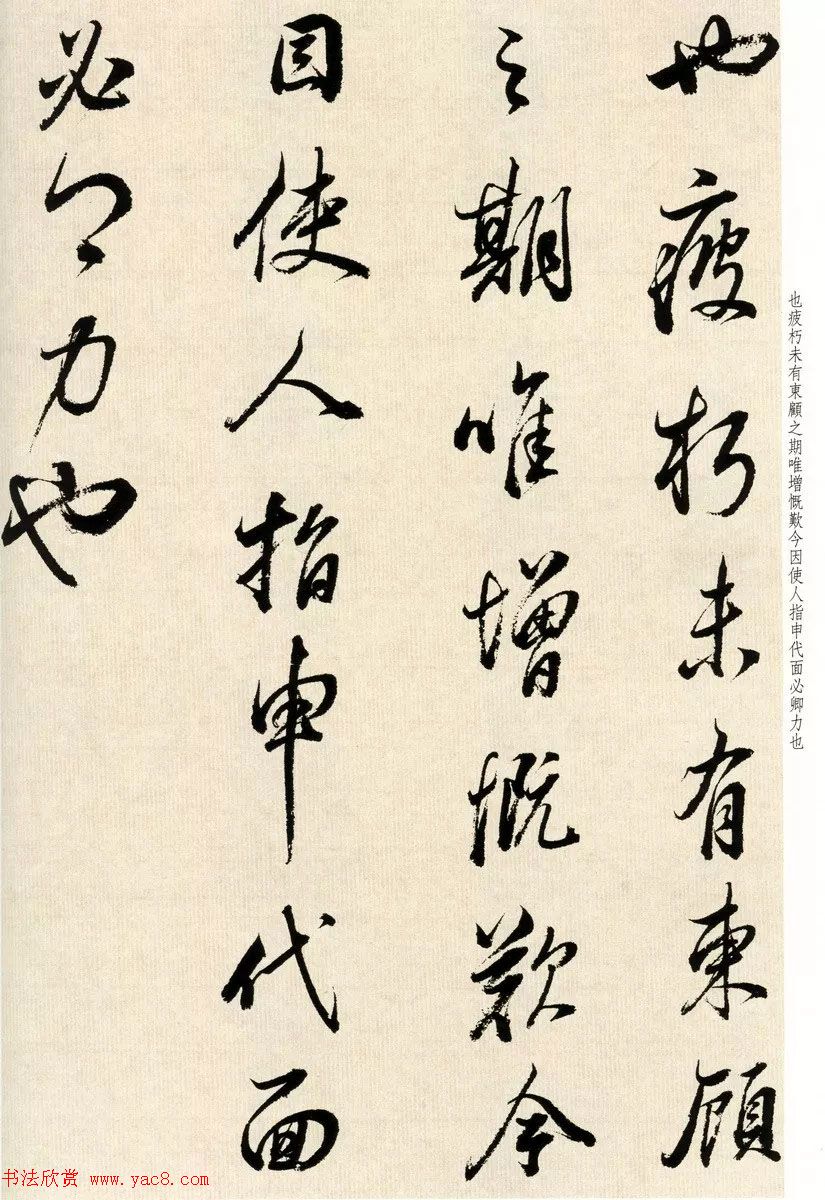 也疲朽未有東顧
之期唯增慨歎今
因使人指申代面
必卿力也
也疲朽未有東顧之期唯增慨歎今因使人指申代面必卿力也
书法欣赏 www.yac8.com